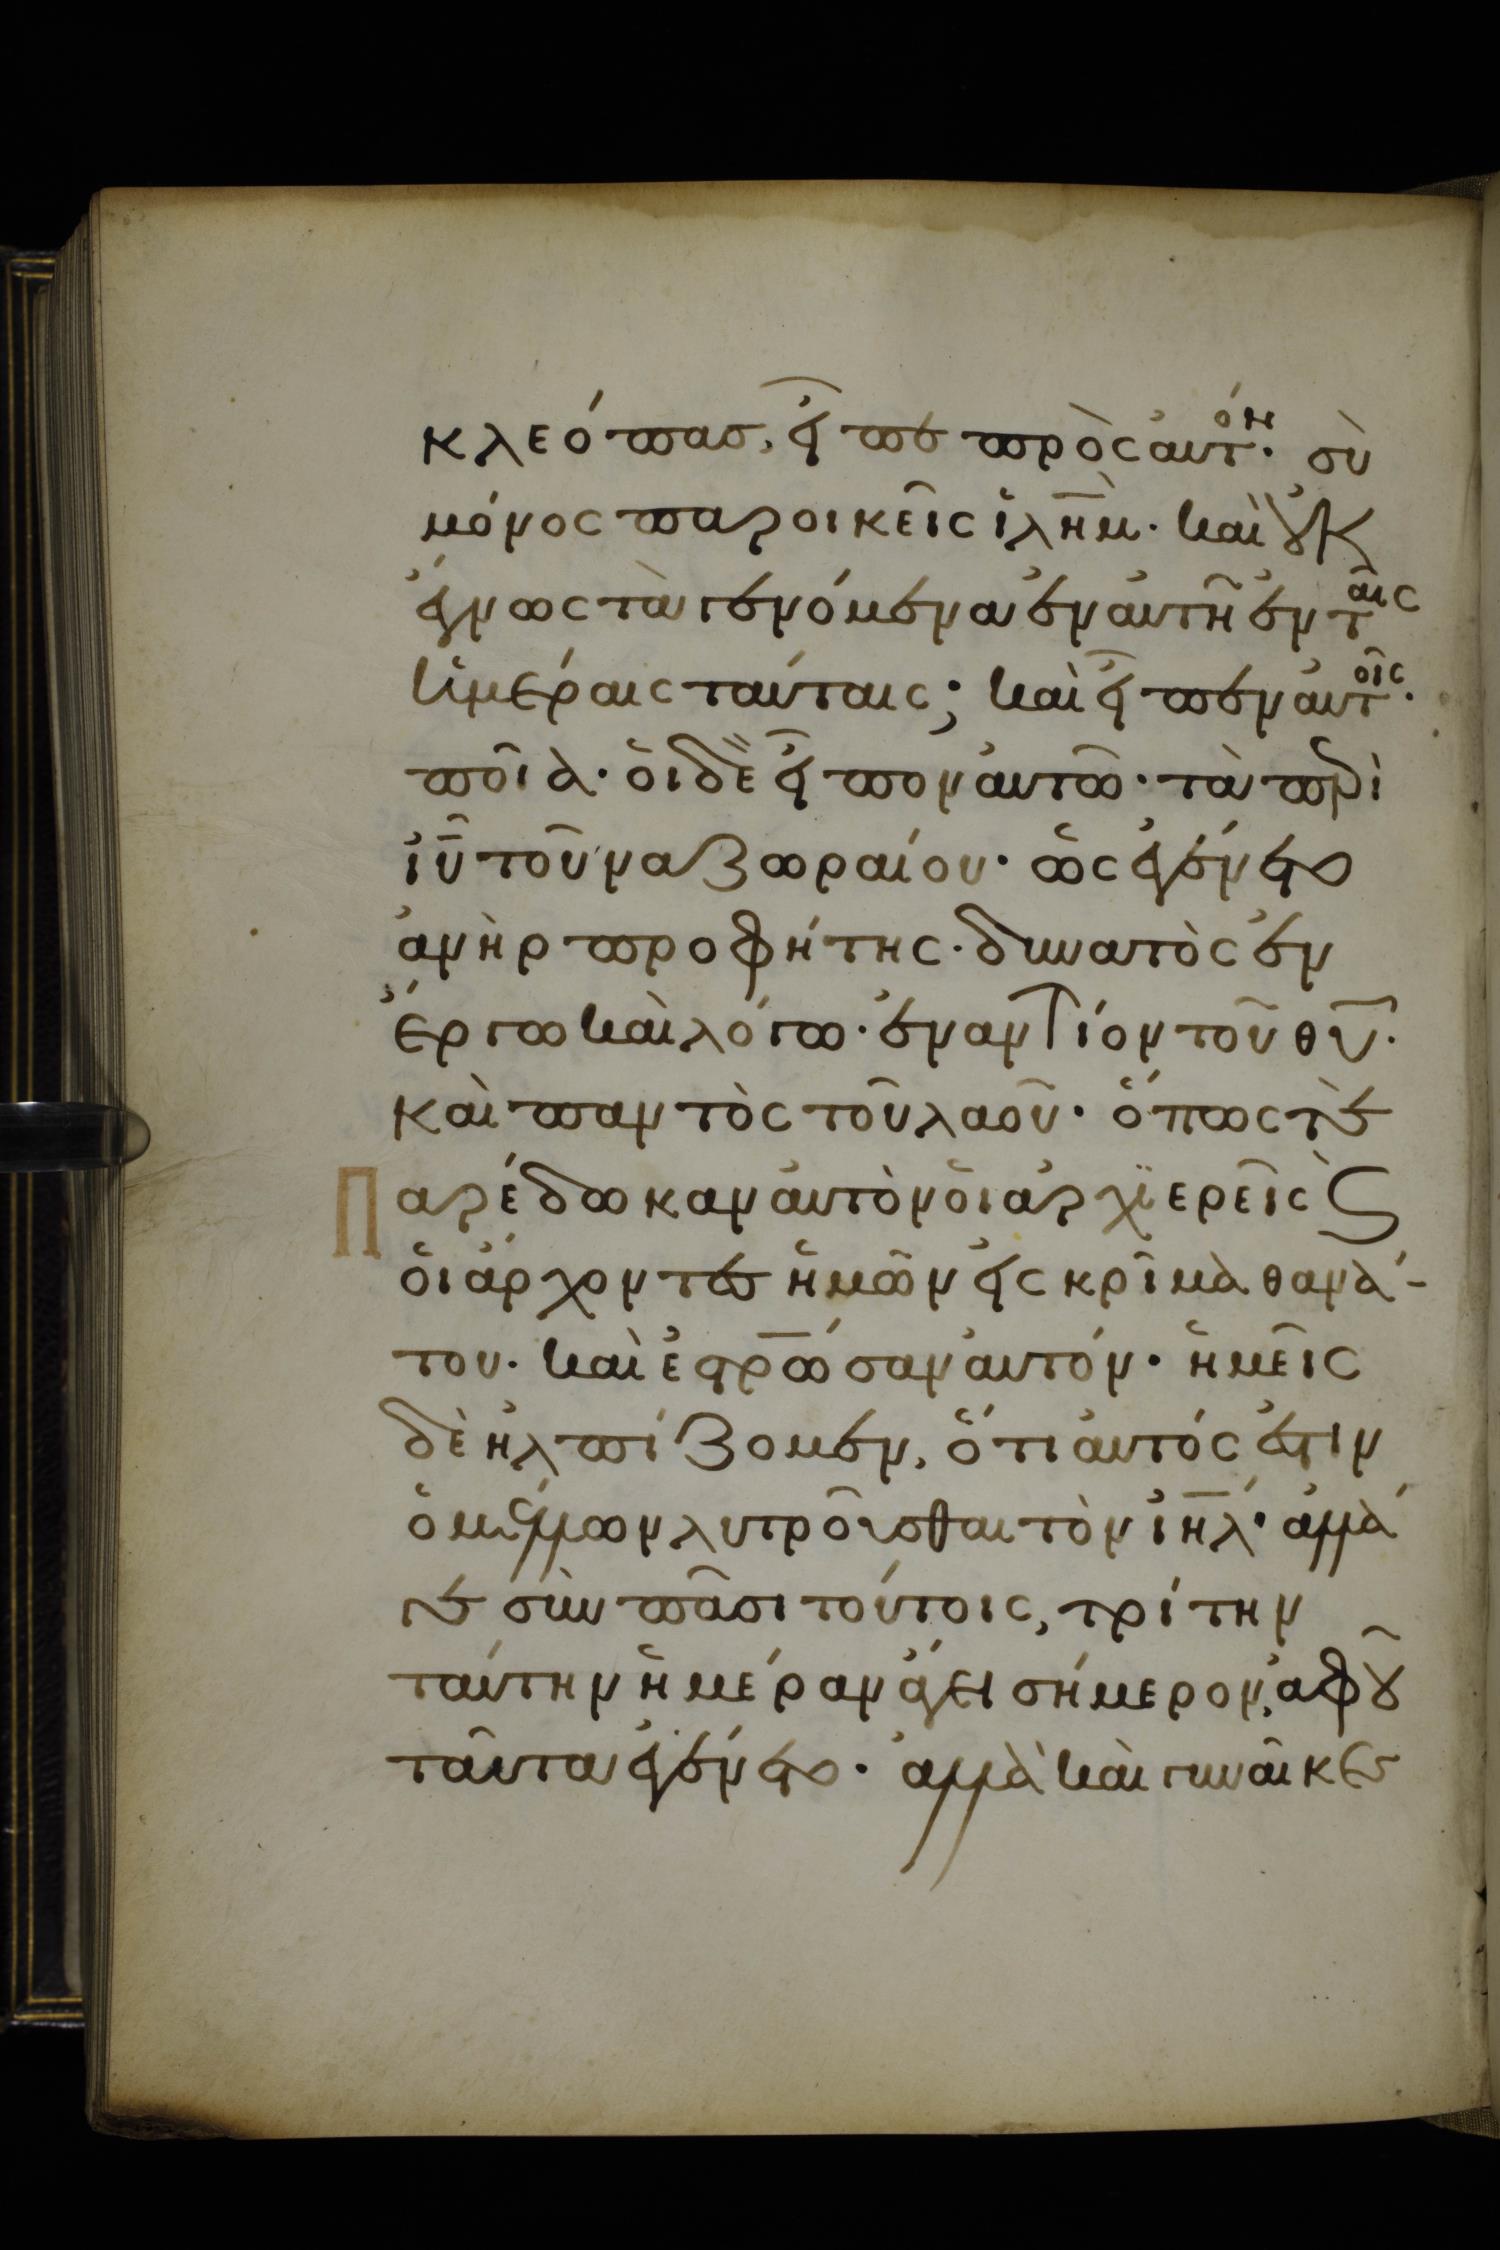 κλεόπας, εἶπε πρὸς αὐτόν· σὺ
μόνος παροικεῖς ἰλῆμ· καὶ οὐκ
ἔγνως τὰ γενόμενα ἐν αὐτῆ ἐν ταῖς
ἡμέραις ταύταις; καὶ εἶπεν αὐτοῖς·
ποῖα· οἱ δὲ εἶπον αὐτῶ· τὰ περὶ
ἰῦ τοῦ ναζωραίου· ὃς ἐγένετο
ἀνὴρ προφήτης· δυνατὸς ἐν
ἔργω καὶ λόγω· ἐναντίον τοῦ θῦ·
καὶ παντὸς τοῦ λαοῦ· ὅπως τὲ
Παρέδωκαν αὐτὸν οἱ ἀρχϊερεῖς ϗ
οἱ ἄρχοντες ἡμῶν εἰς κρῖμα θανά-
του· καὶ ἐσρ̅ωσαν αὐτόν· ἡμεῖς
δὲ ἠλπίζομεν, ὅτι αὐτός ἐστιν
ὁ μέλλων λυτροῦσθαι τὸν ἰηλ· ἀλλά
γε σὺν πᾶσι τούτοις, τρίτην
ταύτην ἡμέραν ἄγει σήμερον, ἀφ οὗ
ταῦτα ἐγένετο· ἀλλὰ καὶ γυναῖκες